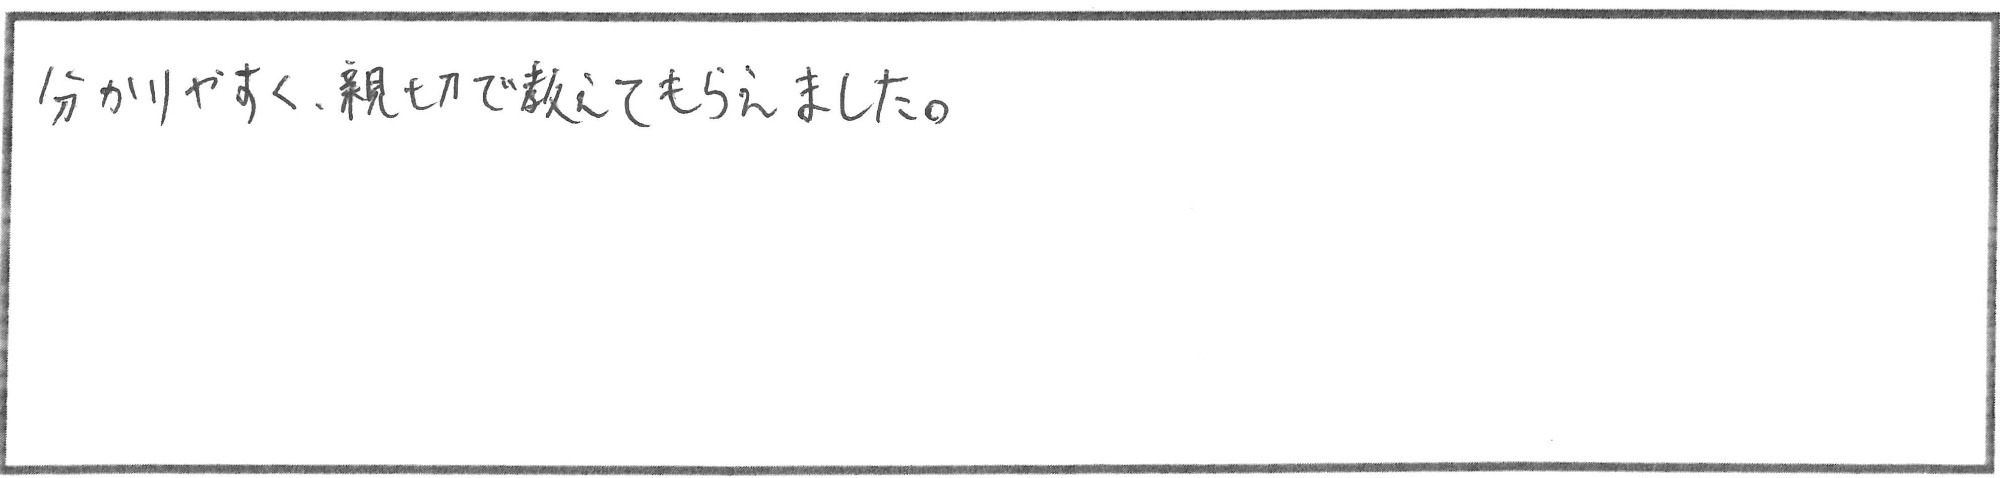 分かりやすく、親切で教えてもらえました。